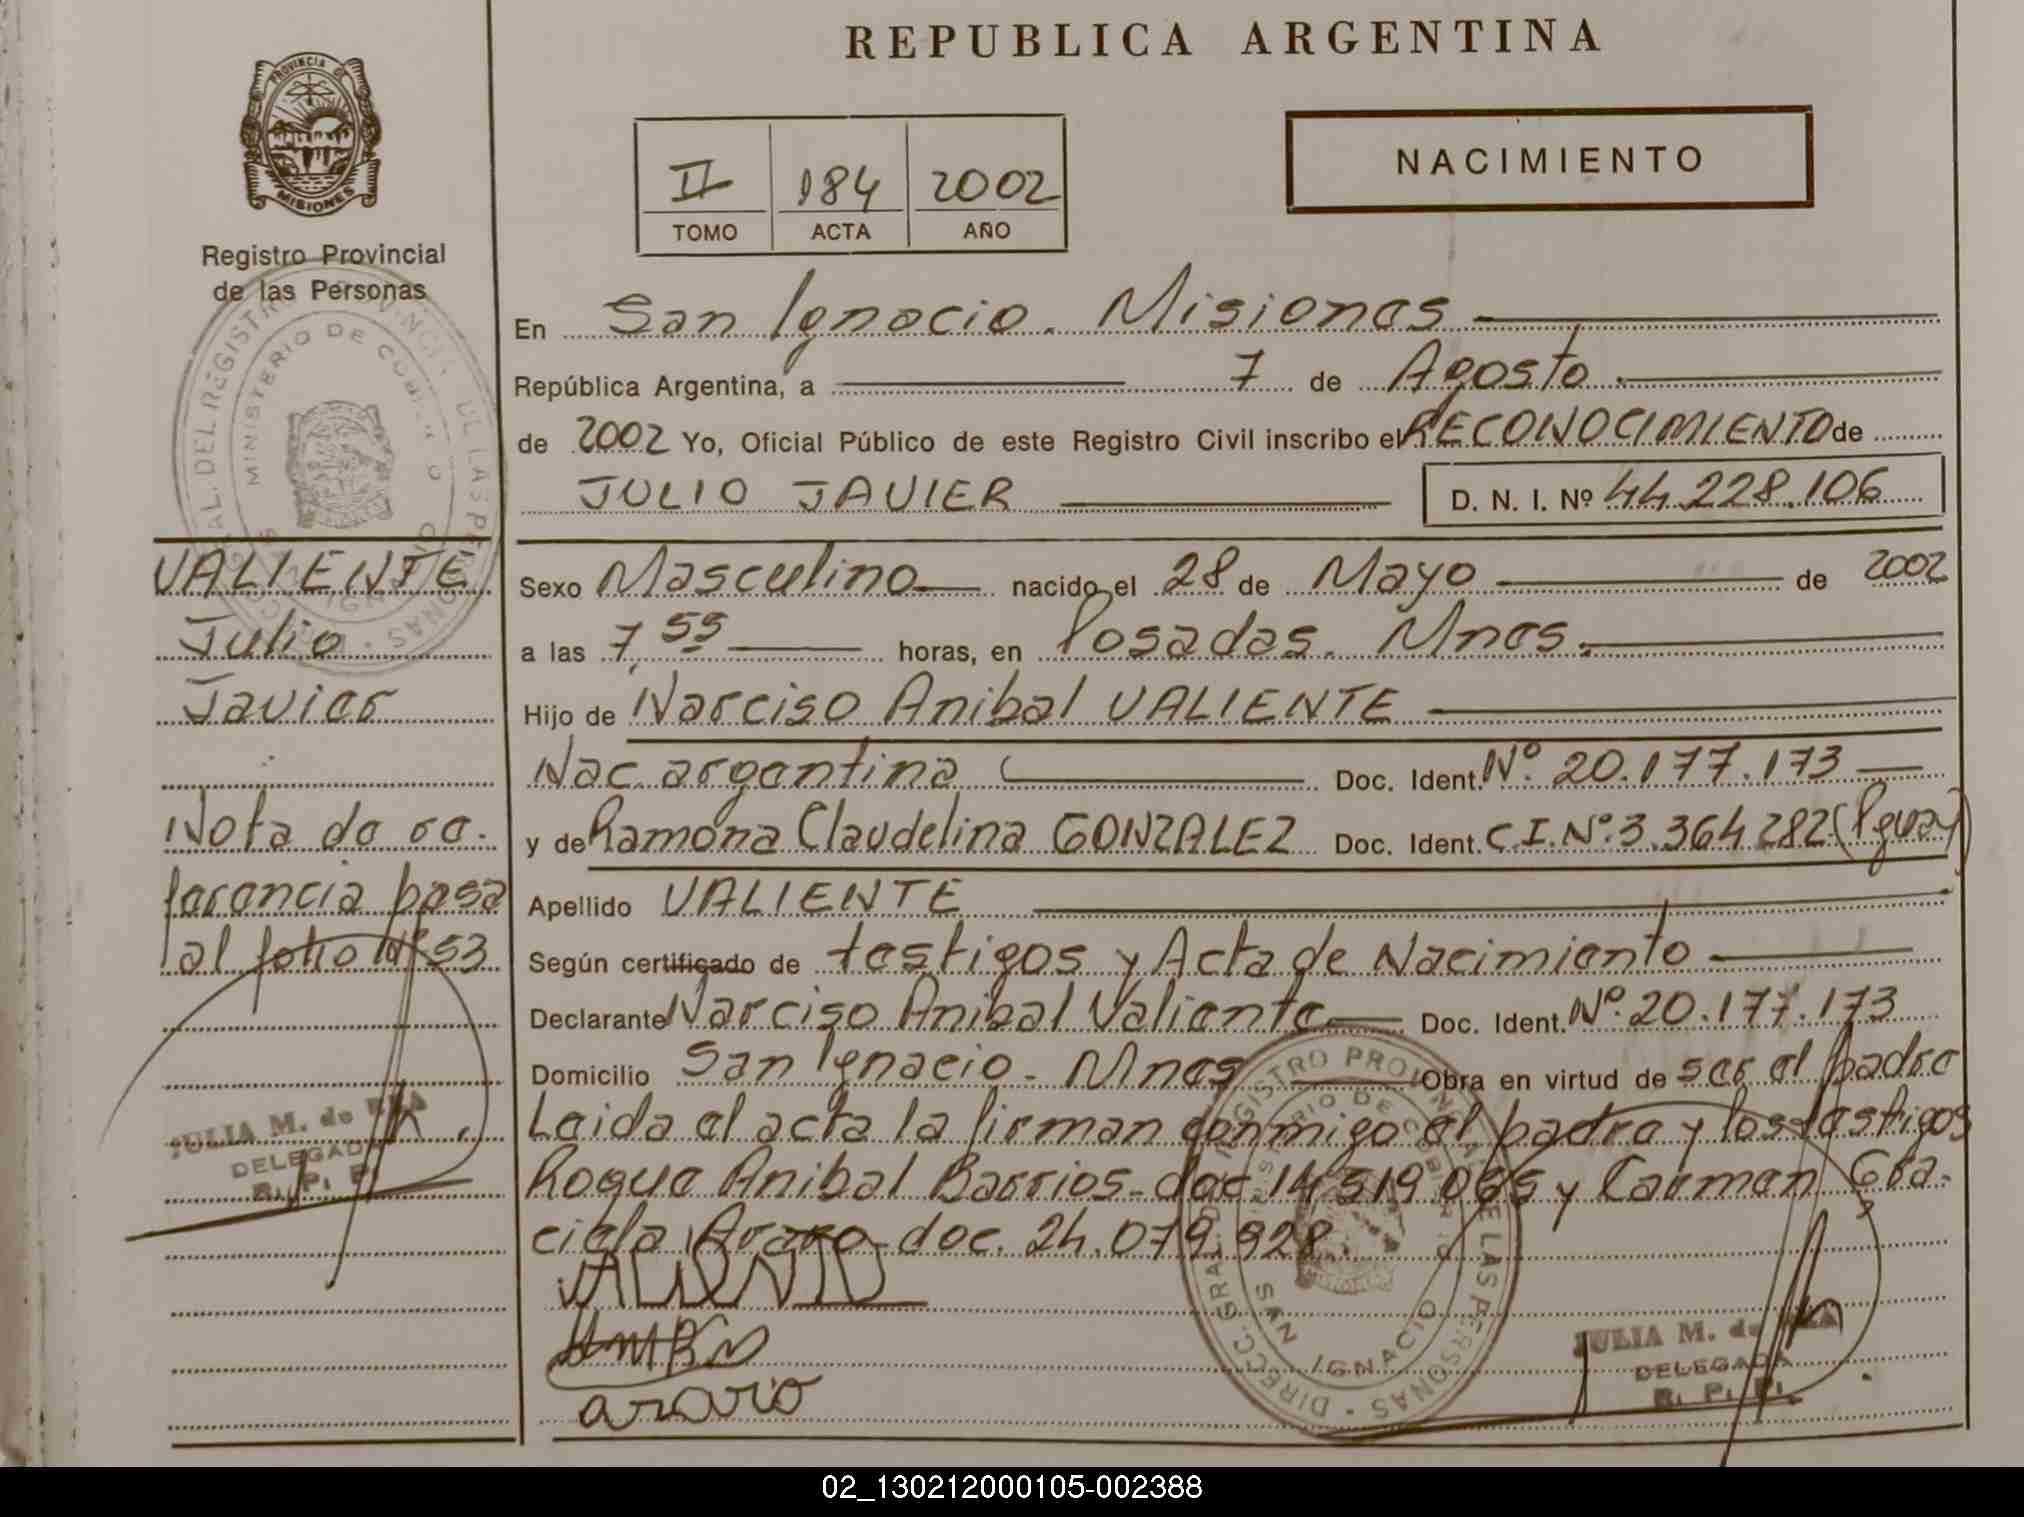 REPUBLICA ARGENTINA
PROVINCIA DE
MISIONES
Registro Provincial
de las Personas
NACIMIENTO
II 184 2002
TOMO ACTA AÑO
En San Ignacio. Misiones
República Argentina, a 7 de Agosto
de 2002 Yo, Oficial Público de este Registro Civil inscribo el RECONOCIMIENTO de
JULIO JAVIER D. N. I. Nº 44.228.106
VALIENTE
Julio
Javier
Nota de re-
ferencia pasa
al folio Nº 53
JULIA M. de
DELEGADA
R. P. P.
Sexo Masculino nacido el 28 de Mayo de 2002
a las 7,55 horas, en Posadas. Mnes.
Hijo de Narciso Anibal VALIENTE
Nac. argentina Doc. Ident. Nº. 20.177.173
y de Ramona Claudelina GONZALEZ Doc. Ident. C.I.Nº:3.364.282 (Pguay)
Apellido VALIENTE
Según certificado de testigos y Acta de Nacimiento
Declarante Narciso Anibal Valiente Doc. Ident. Nº. 20.177.173
Domicilio San Ignacio - Mnes Obra en virtud de ser el padre
Leida el acta la firman conmigo el padre y los testigos
Roque Anibal Barrios - doc. 14.519.065 y Carmen Gra-
ciela doc. 24.079.928.
VALIENTE
DIRECC. GRAL. DEL REGISTRO PROVINCIAL DE LAS PERSONAS
MINISTERIO DE GOBIERNO
SAN IGNACIO
JULIA M. de
DELEGADA
R. P. P.
02_130212000105-002388